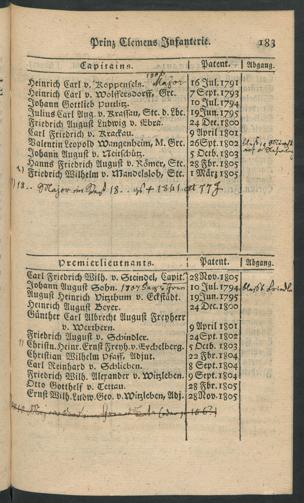 Prinz Clemens Infanterie. 183
Capitains. Patent. Abgang.
Heinrich Carl v. Koppenfels. Major 16 Jul. 1791
Heinrich Carl v. Wolffersdorff, Gre. 7 Sept. 1793
Johann Gottlieb Puttlitz. 10 Jul. 1794
Julius Carl Aug. v. Krassau, Ste. d. Lbc. 19 Jun. 1795
Friedrich August Ludwig v. Ebra. 24 Dec. 1800
Carl Friedrich v. Krackau. 9 April 1801
Valentin Leopold Wangenheim, M. Gre. 26 Sept. 1802
Johann August v. Neitschütz. 5 Octb. 1803
Hanns August Friedrich v. Römer, Ste. 28 Febr. 1805
Friedrich Wilhelm v. Mandelsloh, Ste. 1 März 1805
18.. Major 18.. 1841
Premierlieutnants. Patent. Abgang.
Carl Friedrich Wilh. v. Steindel, Capit. 28 Nov. 1805
Johann August Sohn. 10 Jul. 1794
August Heinrich Vitzthum v. Eckstädt. 19 Jun. 1795
Heinrich August Beyer. 24 Dec. 1800
Günther Carl Albrecht August Freyherr
v. Werthern. 9 April 1801
Friedrich August v. Schindler. 24 Sept. 1802
Christn. Heinr. Ernst Freyh. v. Bechelberg. 5 Octb. 1803
Christian Wilhelm Pfaff, Adjut. 22 Fbr. 1804
Carl Reinhard v. Schlieben. 8 Sept. 1804
Friedrich Wilh. Alexander v. Witzleben. 9 Sept. 1804
Otto Gotthelf v. Tettau. 28 Fbr. 1805
Ernst Wilh. Ludw. Geo. v. Witzleben, Adj. 28 Nov. 1805